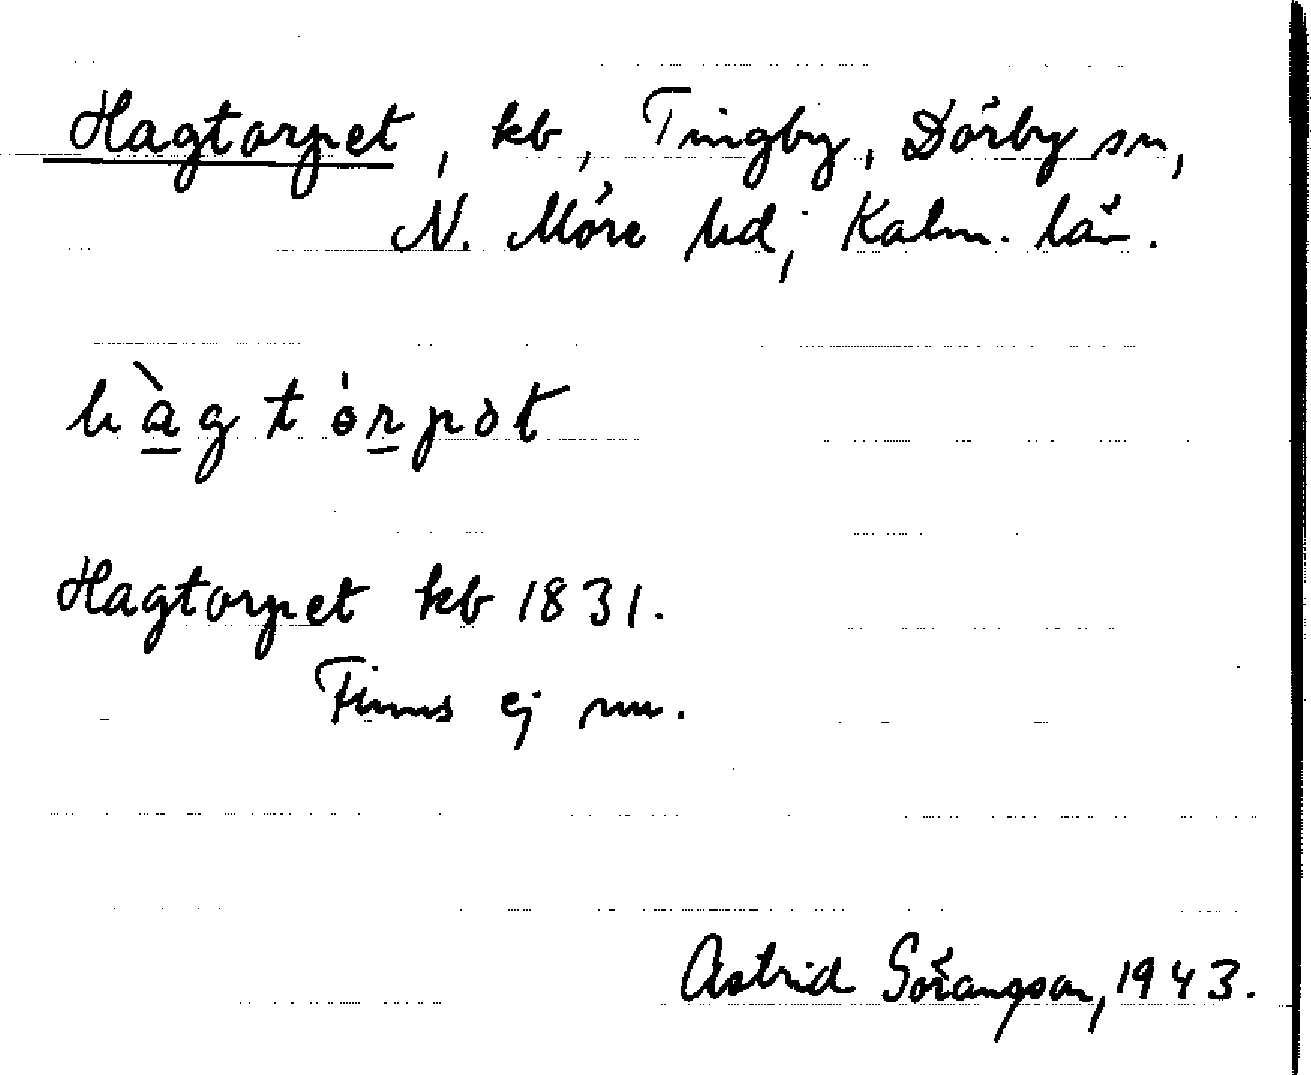 Hagtorpet, kb, Tingby, Dörby sn,
N. Möre hd, Kalm. län.
hàgtórpət
Hagtorpet kb 1831.
Finns ej nu.
Astrid Göransson, 1943.